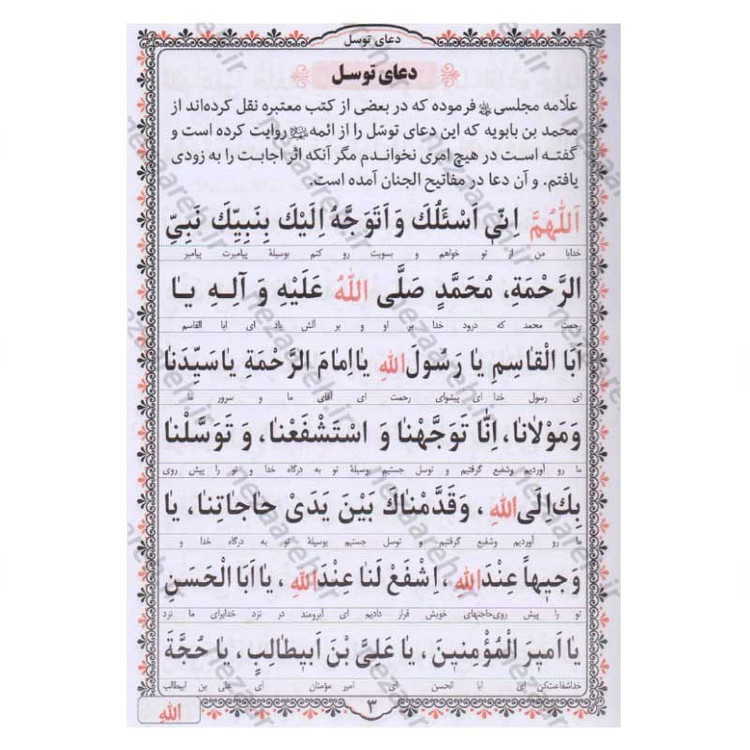 دعای توسل
دعای توسل
علّامه مجلسی فرموده که در بعضی از کتب معتبره نقل کرده‌اند از
محمد بن بابویه که این دعای توسّل را از ائمه روایت کرده است و
گفته است در هیچ امری نخواندم مگر آنکه اثر اجابت را به زودی
یافتم. و آن دعا در مفاتیح الجنان آمده است.
اَللّٰهُمَّ اِنّیٖ اَسْئَلُكَ وَ اَتَوَجَّهُ اِلَیْكَ بِنَبِیِّكَ نَبِیِّ
خدایا من از تو خواهم و بسویت رو کنم بوسیلهٔ پیامبرت پیامبر
الرَّحْمَةِ، مُحَمَّدٍ صَلَّی اللّٰهُ عَلَیْهِ وَ آلِهِ یٰا
رحمت محمد که درود خدا بر او و بر آلش باد ای ابا القاسم
اَبَا الْقٰاسِمِ یٰا رَسُولَ اللّٰهِ یٰا اِمٰامَ الرَّحْمَةِ یٰا سَیِّدَنٰا
ای رسول خدا ای پیشوای رحمت ای آقای ما و سرور ما
وَ مَوْلٰانٰا، اِنّٰا تَوَجَّهْنٰا وَ اسْتَشْفَعْنٰا، وَ تَوَسَّلْنٰا
ما رو آوردیم وشفیع گرفتیم و توسل جستیم بوسیلهٔ تو به درگاه خدا و تو را پیش روی
بِكَ اِلَی اللّٰهِ ، وَ قَدَّمْنٰاكَ بَیْنَ یَدَیْ حٰاجٰاتِنٰا، یٰا
ما رو آوردیم وشفیع گرفتیم و توسل جستیم بوسیلهٔ تو به درگاه خدا و
وَجیٖهاً عِنْدَ اللّٰهِ ، اِشْفَعْ لَنٰا عِنْدَ اللّٰهِ ، یٰا اَبَا الْحَسَنِ
تو را پیش روی حاجتهای خویش قرار دادیم ای آبرومند در نزد خدابرای ما نزد
یٰا اَمیٖرَ الْمُؤْمِنیٖنَ ، یٰا عَلِیَّ بْنَ اَبیٖطٰالِبٍ، یٰا حُجَّةَ
خداشفاعت‌کن ای ابا الحسن ای امیر مؤمنان ای علی بن ابیطالب
۳
اللّٰهِ
nezaareh.ir